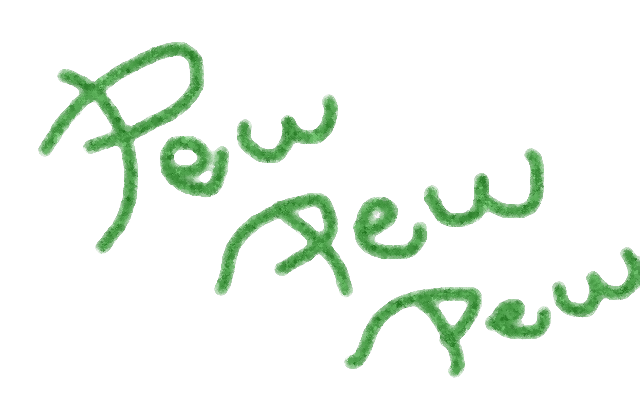 Pew
Pew
Pew